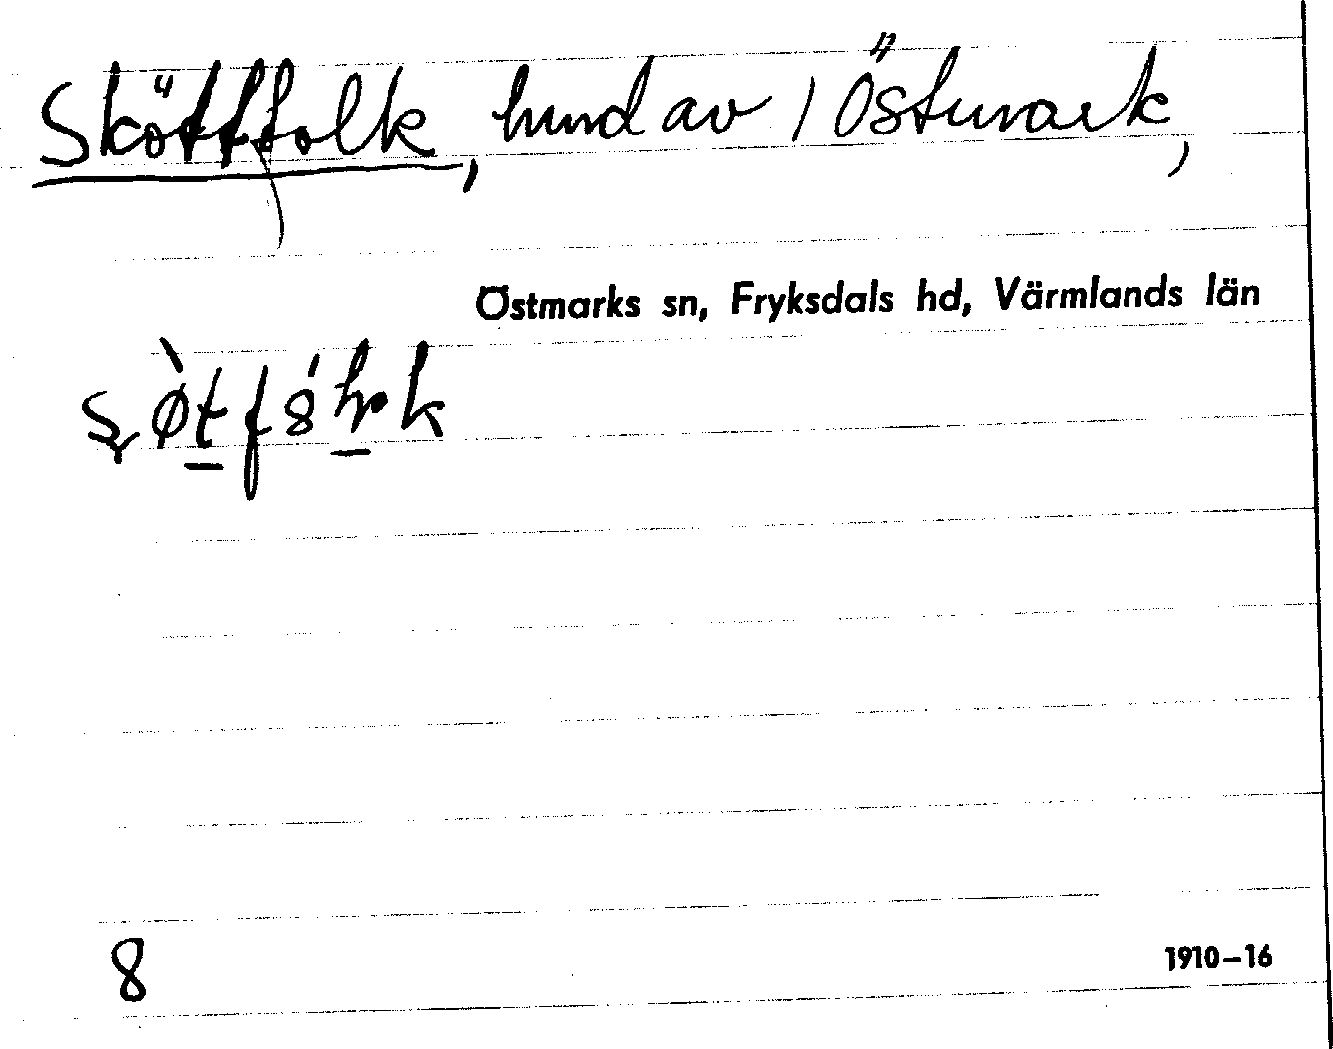 Sköttfolk, hmd av i Östmark,
Östmarks sn, Fryksdals hd, Värmlands län
8
1910–16